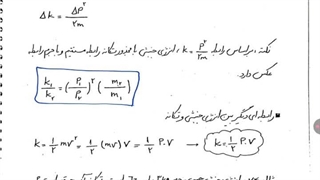 Δk = ΔP² / ۲m
نکته: براساس رابطه k = P²/۲m ، انرژی جنبشی با مجذور تکانه رابطه مستقیم و با جرم رابطه
عکس دارد
k₁/k₂ = (P₁/P₂)² (m₂/m₁)
رابطه ای دیگر بین انرژی جنبشی و تکانه
k = ۱/۲ mv² = ۱/۲ (mv) V = ۱/۲ P.V → k = ۱/۲ P.V